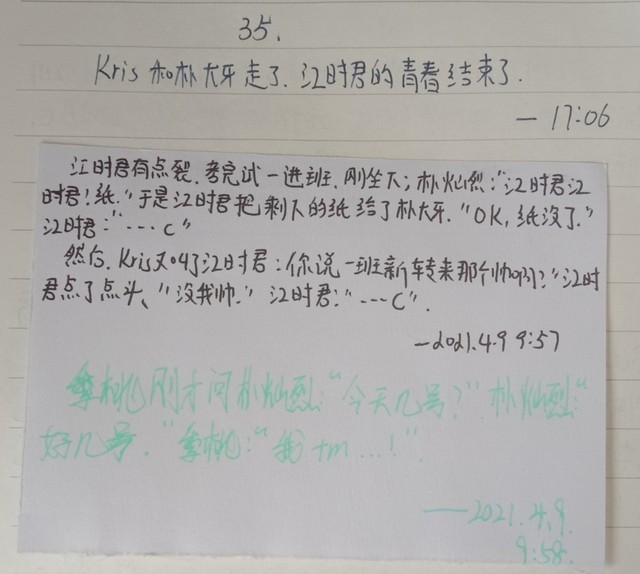 35.
Kris和朴大牙走了.江时君的青春结束了.
— 17:06
江时君有点裂.考完试一进班.刚坐下;朴灿烈:"江时君江
时君!纸."于是江时君把剩下的纸给了朴大牙."OK,纸没了."
江时君:"---C"
然后.Kris又叫了江时君:你说一班新转来那个帅吗?"江时
君点了点头、"没我帅."江时君:"---C".
—2021.4.9 9:57
桃刚才问朴灿烈:"今天几号?"朴灿烈:"
好几号."桃:"我tm...!"
——2021.4.9.
9:58.